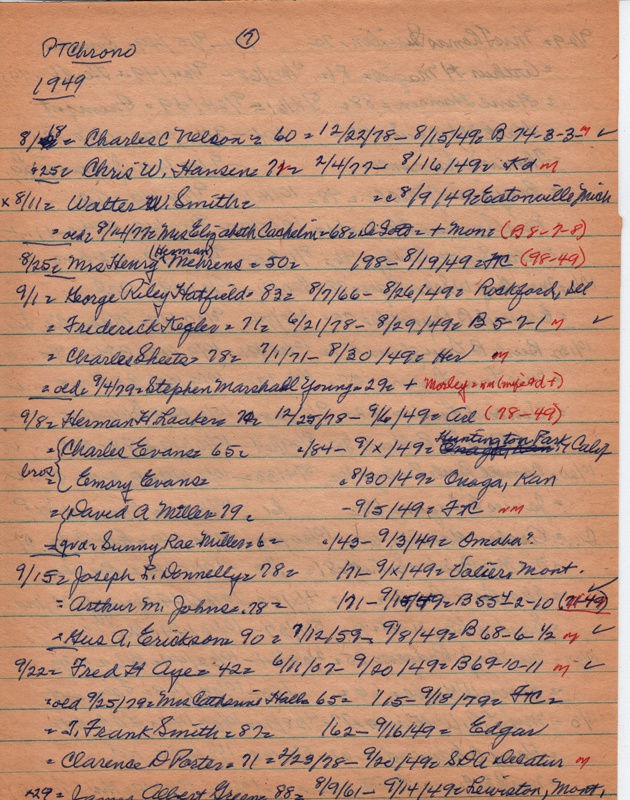 PT Chrono (7)
1949
8/18 = Charles C Nelson = 60 = 12/22/78 - 8/15/49 = B 74-3-3 - m ✓
*25 = Chris W. Hansen = 72 = 2/4/77 - 8/16/49 = Kd m
x 8/11 = Walter W. Smith = = c 8/9/49 = Eatonville, Mich
= oed = 8/14/77 = Mrs Elizabeth = 68 = + Mon = (B 8-7-8)
8/25 = Mrs Henry (Herman) Mehrens = 50 = 198 - 8/19/49 = FC (98-49)
9/1 = George Riley Hatfield = 83 = 8/7/66 - 8/26/49 = Rockford, Ill
= Frederick Kegler = 71 = 6/21/78 - 8/29/49 = B 5-7-1 m ✓
= Charles Sheets = 78 = 7/1/71 - 8/30/49 = Her m
= oed = 9/4/79 = Stephen Marshall Young = 29 = + Morley = nm
9/8 = Herman H Laaker = 70 = 12/25/78 - 9/6/49 = Arl (78-49)
= { Charles Evans = 65 = /84 - 9/x/49 = Huntington Park, Calif
bros = { Emory Evans = c 8/30/49 = Onaga, Kan
= (David A Miller = 79 = - 9/5/49 = FC nm
= gvd = Sunny Rae Miller = 6 = c/43 - 9/3/49 = Omaha?
9/15 = Joseph L. Donnelly = 78 = /71 - 9/x/49 = Valier, Mont.
= Arthur M. Johns = 78 = /71 - 9/15/49 = B 55-2-10 (71-49) ✓
x Gus A. Erickson = 90 = 7/12/59 - 9/8/49 = B 68-6-1/2 m ✓
9/22 = Fred H Age = 42 = 6/11/07 - 9/20/49 = B 69-10-11 m ✓
= oed 9/25/79 = Mrs Catherine Hall = 65 = /15 - 9/18/79 = FC =
= J. Frank Smith = 87 = /62 - 9/16/49 = Edgar
= Clarence D Porter = 71 = 2/23/78 - 9/20/49 = SDA Decatur m
x29 = James Albert Greene = 88 = 8/9/61 - 9/14/49 = Lewiston, Mont.